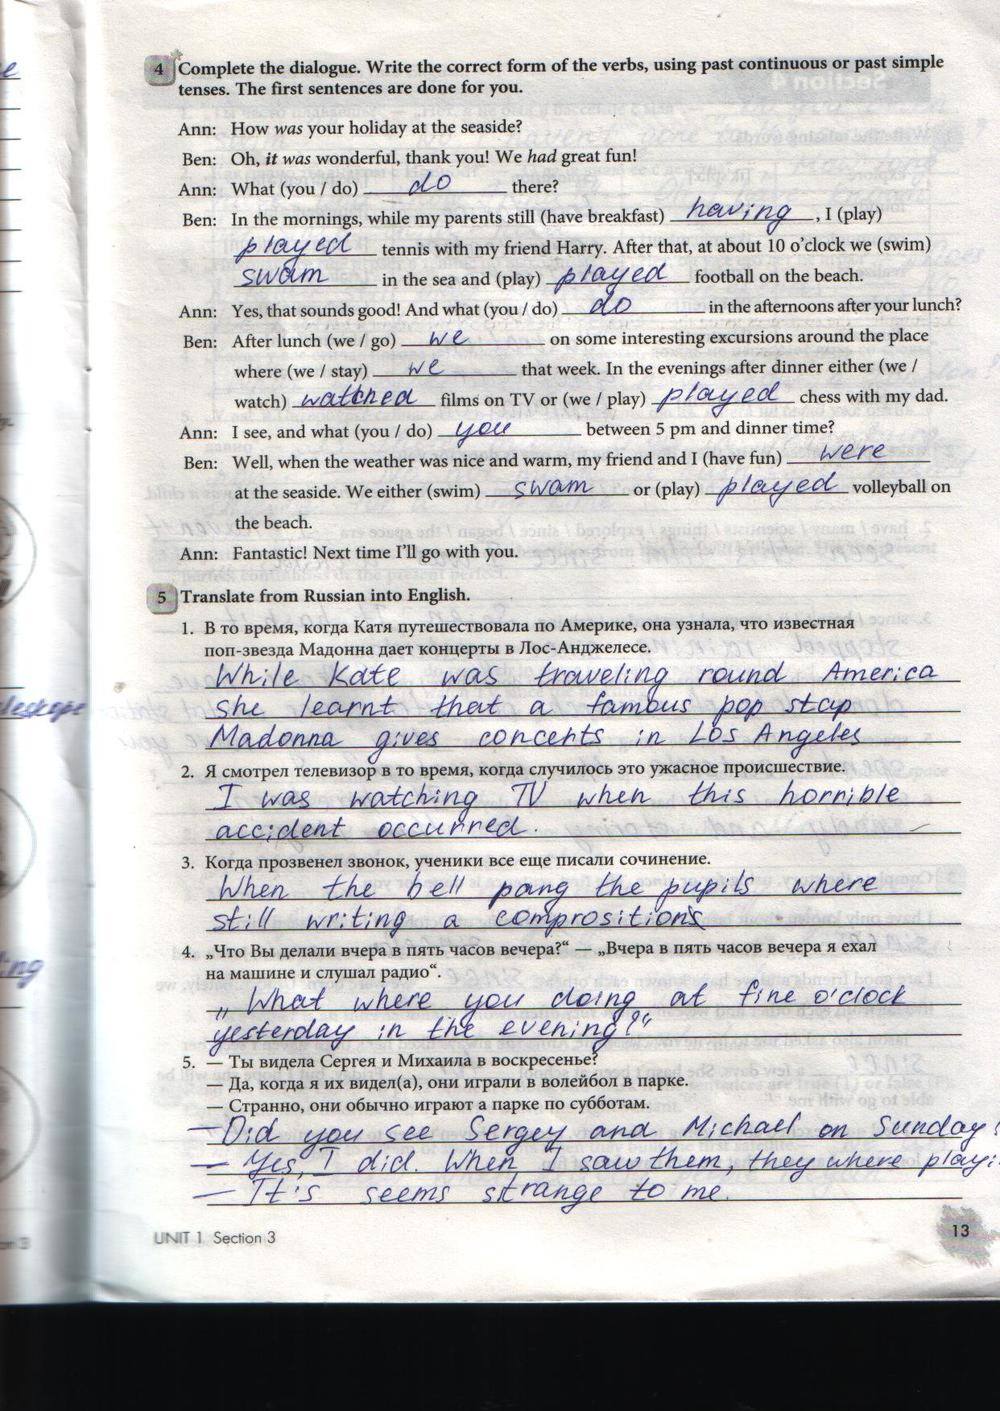 4 Complete the dialogue. Write the correct form of the verbs, using past continuous or past simple
tenses. The first sentences are done for you.
Ann: How was your holiday at the seaside?
Ben: Oh, it was wonderful, thank you! We had great fun!
Ann: What (you / do) do there?
Ben: In the mornings, while my parents still (have breakfast) having, I (play)
played tennis with my friend Harry. After that, at about 10 o'clock we (swim)
swam in the sea and (play) played football on the beach.
Ann: Yes, that sounds good! And what (you / do) do in the afternoons after your lunch?
Ben: After lunch (we / go) we on some interesting excursions around the place
where (we / stay) we that week. In the evenings after dinner either (we /
watch) watched films on TV or (we / play) played chess with my dad.
Ann: I see, and what (you / do) you between 5 pm and dinner time?
Ben: Well, when the weather was nice and warm, my friend and I (have fun) were
at the seaside. We either (swim) swam or (play) played volleyball on
the beach.
Ann: Fantastic! Next time I'll go with you.
5 Translate from Russian into English.
1. В то время, когда Катя путешествовала по Америке, она узнала, что известная
поп-звезда Мадонна дает концерты в Лос-Анджелесе.
While Kate was traveling round America
she learnt that a famous pop stap
Madonna gives concerts in Los Angeles
2. Я смотрел телевизор в то время, когда случилось это ужасное происшествие.
I was watching TV when this horrible
accident occurred.
3. Когда прозвенел звонок, ученики все еще писали сочинение.
When the bell pang the pupils where
still writing a comprositions
4. „Что Вы делали вчера в пять часов вечера?“ — „Вчера в пять часов вечера я ехал
на машине и слушал радио“.
„What where you doing at fine o'clock
yesterday in the evening?“
5. — Ты видела Сергея и Михаила в воскресенье?
— Да, когда я их видел(а), они играли в волейбол в парке.
— Странно, они обычно играют а парке по субботам.
— Did you see Sergey and Michael on Sunday?
— Yes, I did. When I saw them, they where playi
— It's seems strange to me.
UNIT 1 Section 3
13